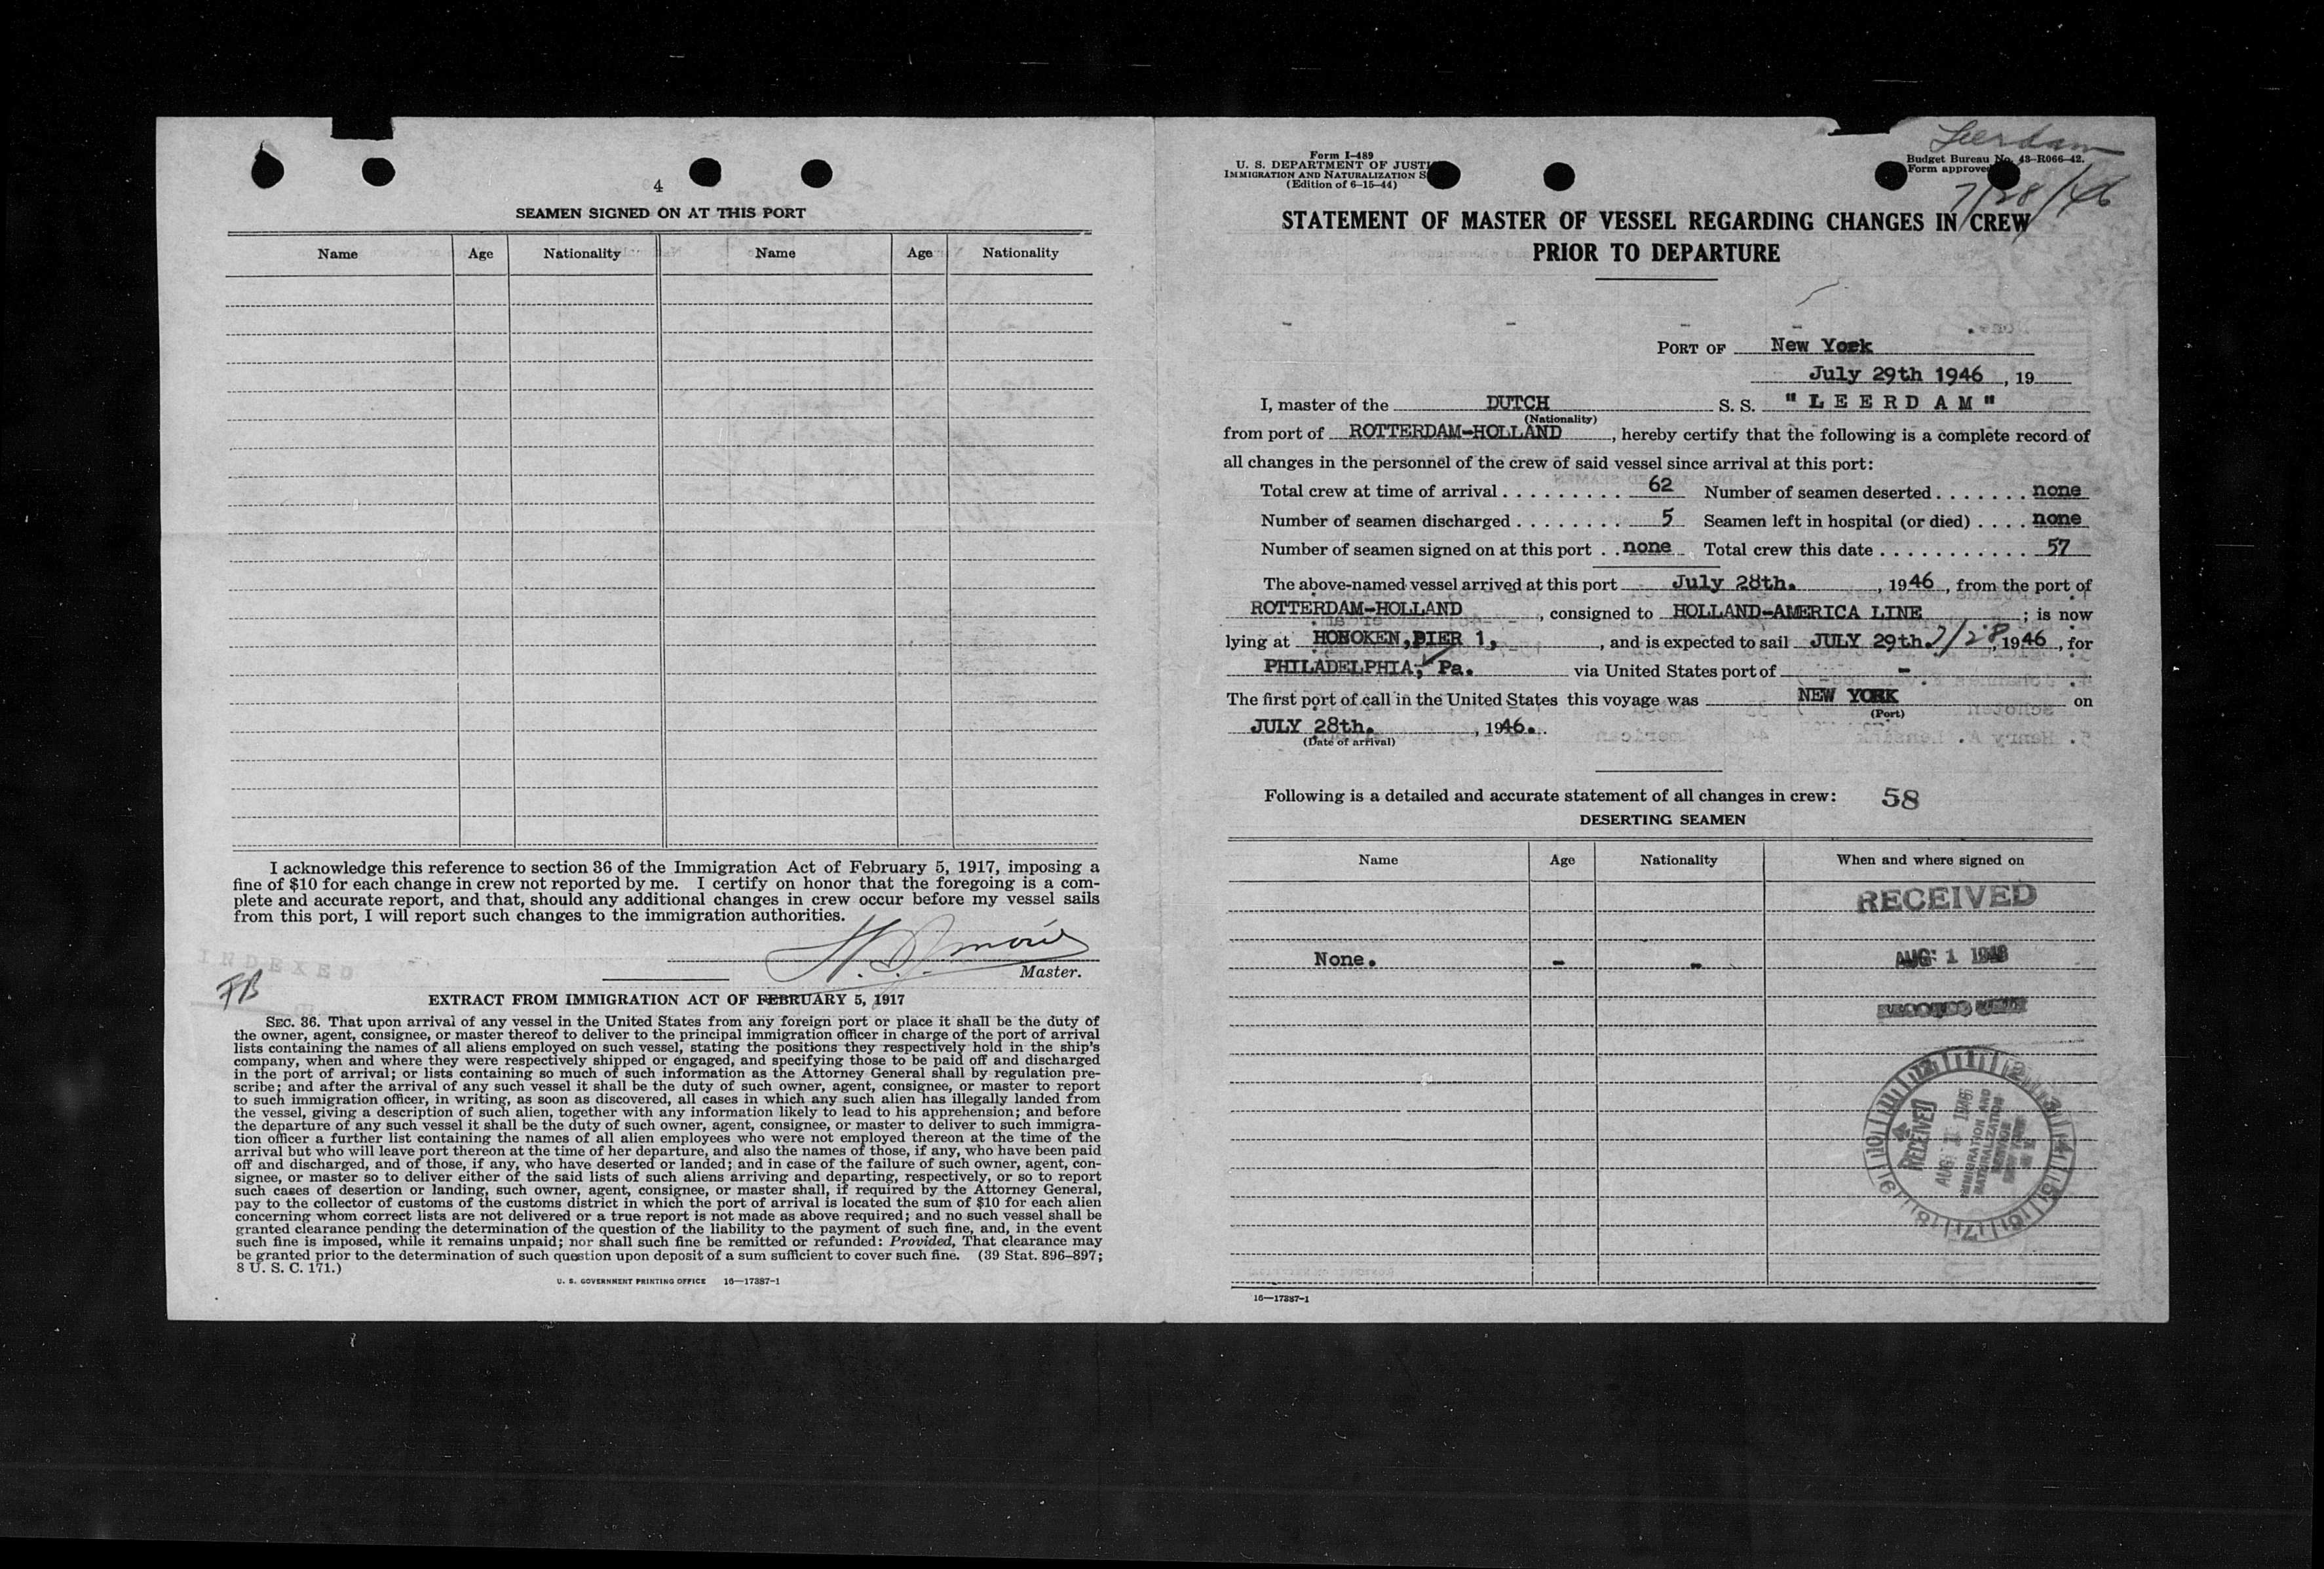 4
SEAMEN SIGNED ON AT THIS PORT
Name Age Nationality Name Age Nationality
I acknowledge this reference to section 36 of the Immigration Act of February 5, 1917, imposing a
fine of $10 for each change in crew not reported by me. I certify on honor that the foregoing is a com-
plete and accurate report, and that, should any additional changes in crew occur before my vessel sails
from this port, I will report such changes to the immigration authorities.
INDEXED
FB
Master.
EXTRACT FROM IMMIGRATION ACT OF FEBRUARY 5, 1917
SEC. 36. That upon arrival of any vessel in the United States from any foreign port or place it shall be the duty of
the owner, agent, consignee, or master thereof to deliver to the principal immigration officer in charge of the port of arrival
lists containing the names of all aliens employed on such vessel, stating the positions they respectively hold in the ship's
company, when and where they were respectively shipped or engaged, and specifying those to be paid off and discharged
in the port of arrival; or lists containing so much of such information as the Attorney General shall by regulation pre-
scribe; and after the arrival of any such vessel it shall be the duty of such owner, agent, consignee, or master to report
to such immigration officer, in writing, as soon as discovered, all cases in which any such alien has illegally landed from
the vessel, giving a description of such alien, together with any information likely to lead to his apprehension; and before
the departure of any such vessel it shall be the duty of such owner, agent, consignee, or master to deliver to such immigra-
tion officer a further list containing the names of all alien employees who were not employed thereon at the time of the
arrival but who will leave port thereon at the time of her departure, and also the names of those, if any, who have been paid
off and discharged, and of those, if any, who have deserted or landed; and in case of the failure of such owner, agent, con-
signee, or master so to deliver either of the said lists of such aliens arriving and departing, respectively, or so to report
such cases of desertion or landing, such owner, agent, consignee, or master shall, if required by the Attorney General,
pay to the collector of customs of the customs district in which the port of arrival is located the sum of $10 for each alien
concerning whom correct lists are not delivered or a true report is not made as above required; and no such vessel shall be
granted clearance pending the determination of the question of the liability to the payment of such fine, and, in the event
such fine is imposed, while it remains unpaid; nor shall such fine be remitted or refunded: Provided, That clearance may
be granted prior to the determination of such question upon deposit of a sum sufficient to cover such fine. (39 Stat. 896–897;
8 U. S. C. 171.)
U. S. GOVERNMENT PRINTING OFFICE 16—17387-1
Leerdam
7/28/46
Form I-489
U. S. DEPARTMENT OF JUSTI
IMMIGRATION AND NATURALIZATION S
(Edition of 6-15-44)
Budget Bureau No. 43-R066-42.
Form approve
STATEMENT OF MASTER OF VESSEL REGARDING CHANGES IN CREW
PRIOR TO DEPARTURE
PORT OF New York
July 29th 1946, 19
I, master of the DUTCH S. S. "LEERDAM"
(Nationality)
from port of ROTTERDAM-HOLLAND, hereby certify that the following is a complete record of
all changes in the personnel of the crew of said vessel since arrival at this port:
Total crew at time of arrival . . . . . . . . . 62 Number of seamen deserted . . . . . . . none
Number of seamen discharged . . . . . . . . 5 Seamen left in hospital (or died) . . . . none
Number of seamen signed on at this port . . none Total crew this date . . . . . . . . . . . . 57
The above-named vessel arrived at this port July 28th., 1946, from the port of
ROTTERDAM-HOLLAND, consigned to HOLLAND-AMERICA LINE; is now
lying at HOBOKEN, PIER 1, , and is expected to sail JULY 29th. 7/28, 1946, for
PHILADELPHIA, Pa. via United States port of -
The first port of call in the United States this voyage was NEW YORK on
(Port)
JULY 28th., 1946.
(Date of arrival)
Following is a detailed and accurate statement of all changes in crew: 58
DESERTING SEAMEN
Name Age Nationality When and where signed on
RECEIVED
None. - - AUG 1 1946
RECORDS UNIT
RECEIVED
AUG 1 1946
IMMIGRATION AND
NATURALIZATION
SERVICE
16—17387-1